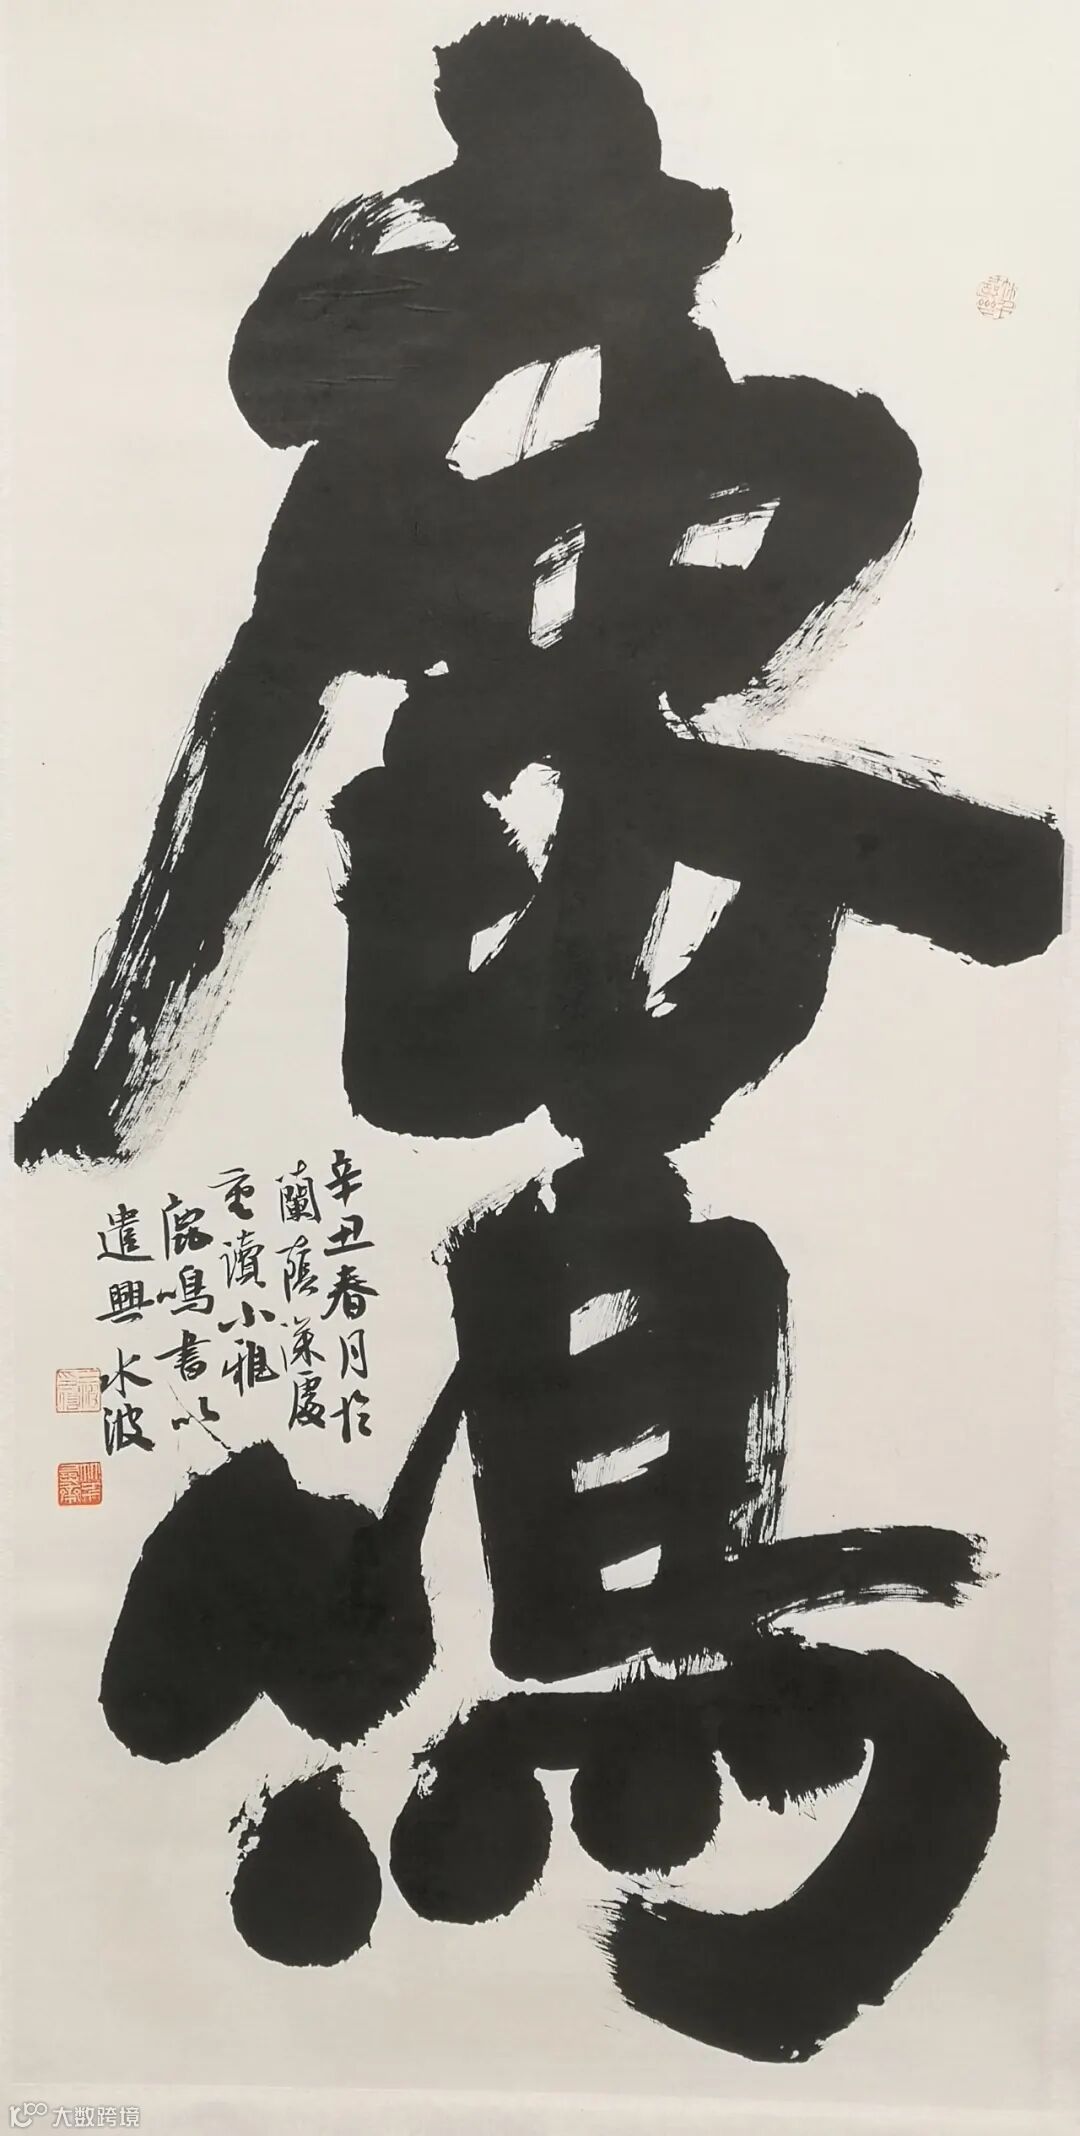 鹿鳴
辛丑春月於
蘭蔭深處
重讀小雅
鹿鳴書以
遣興 水波
大数跨境